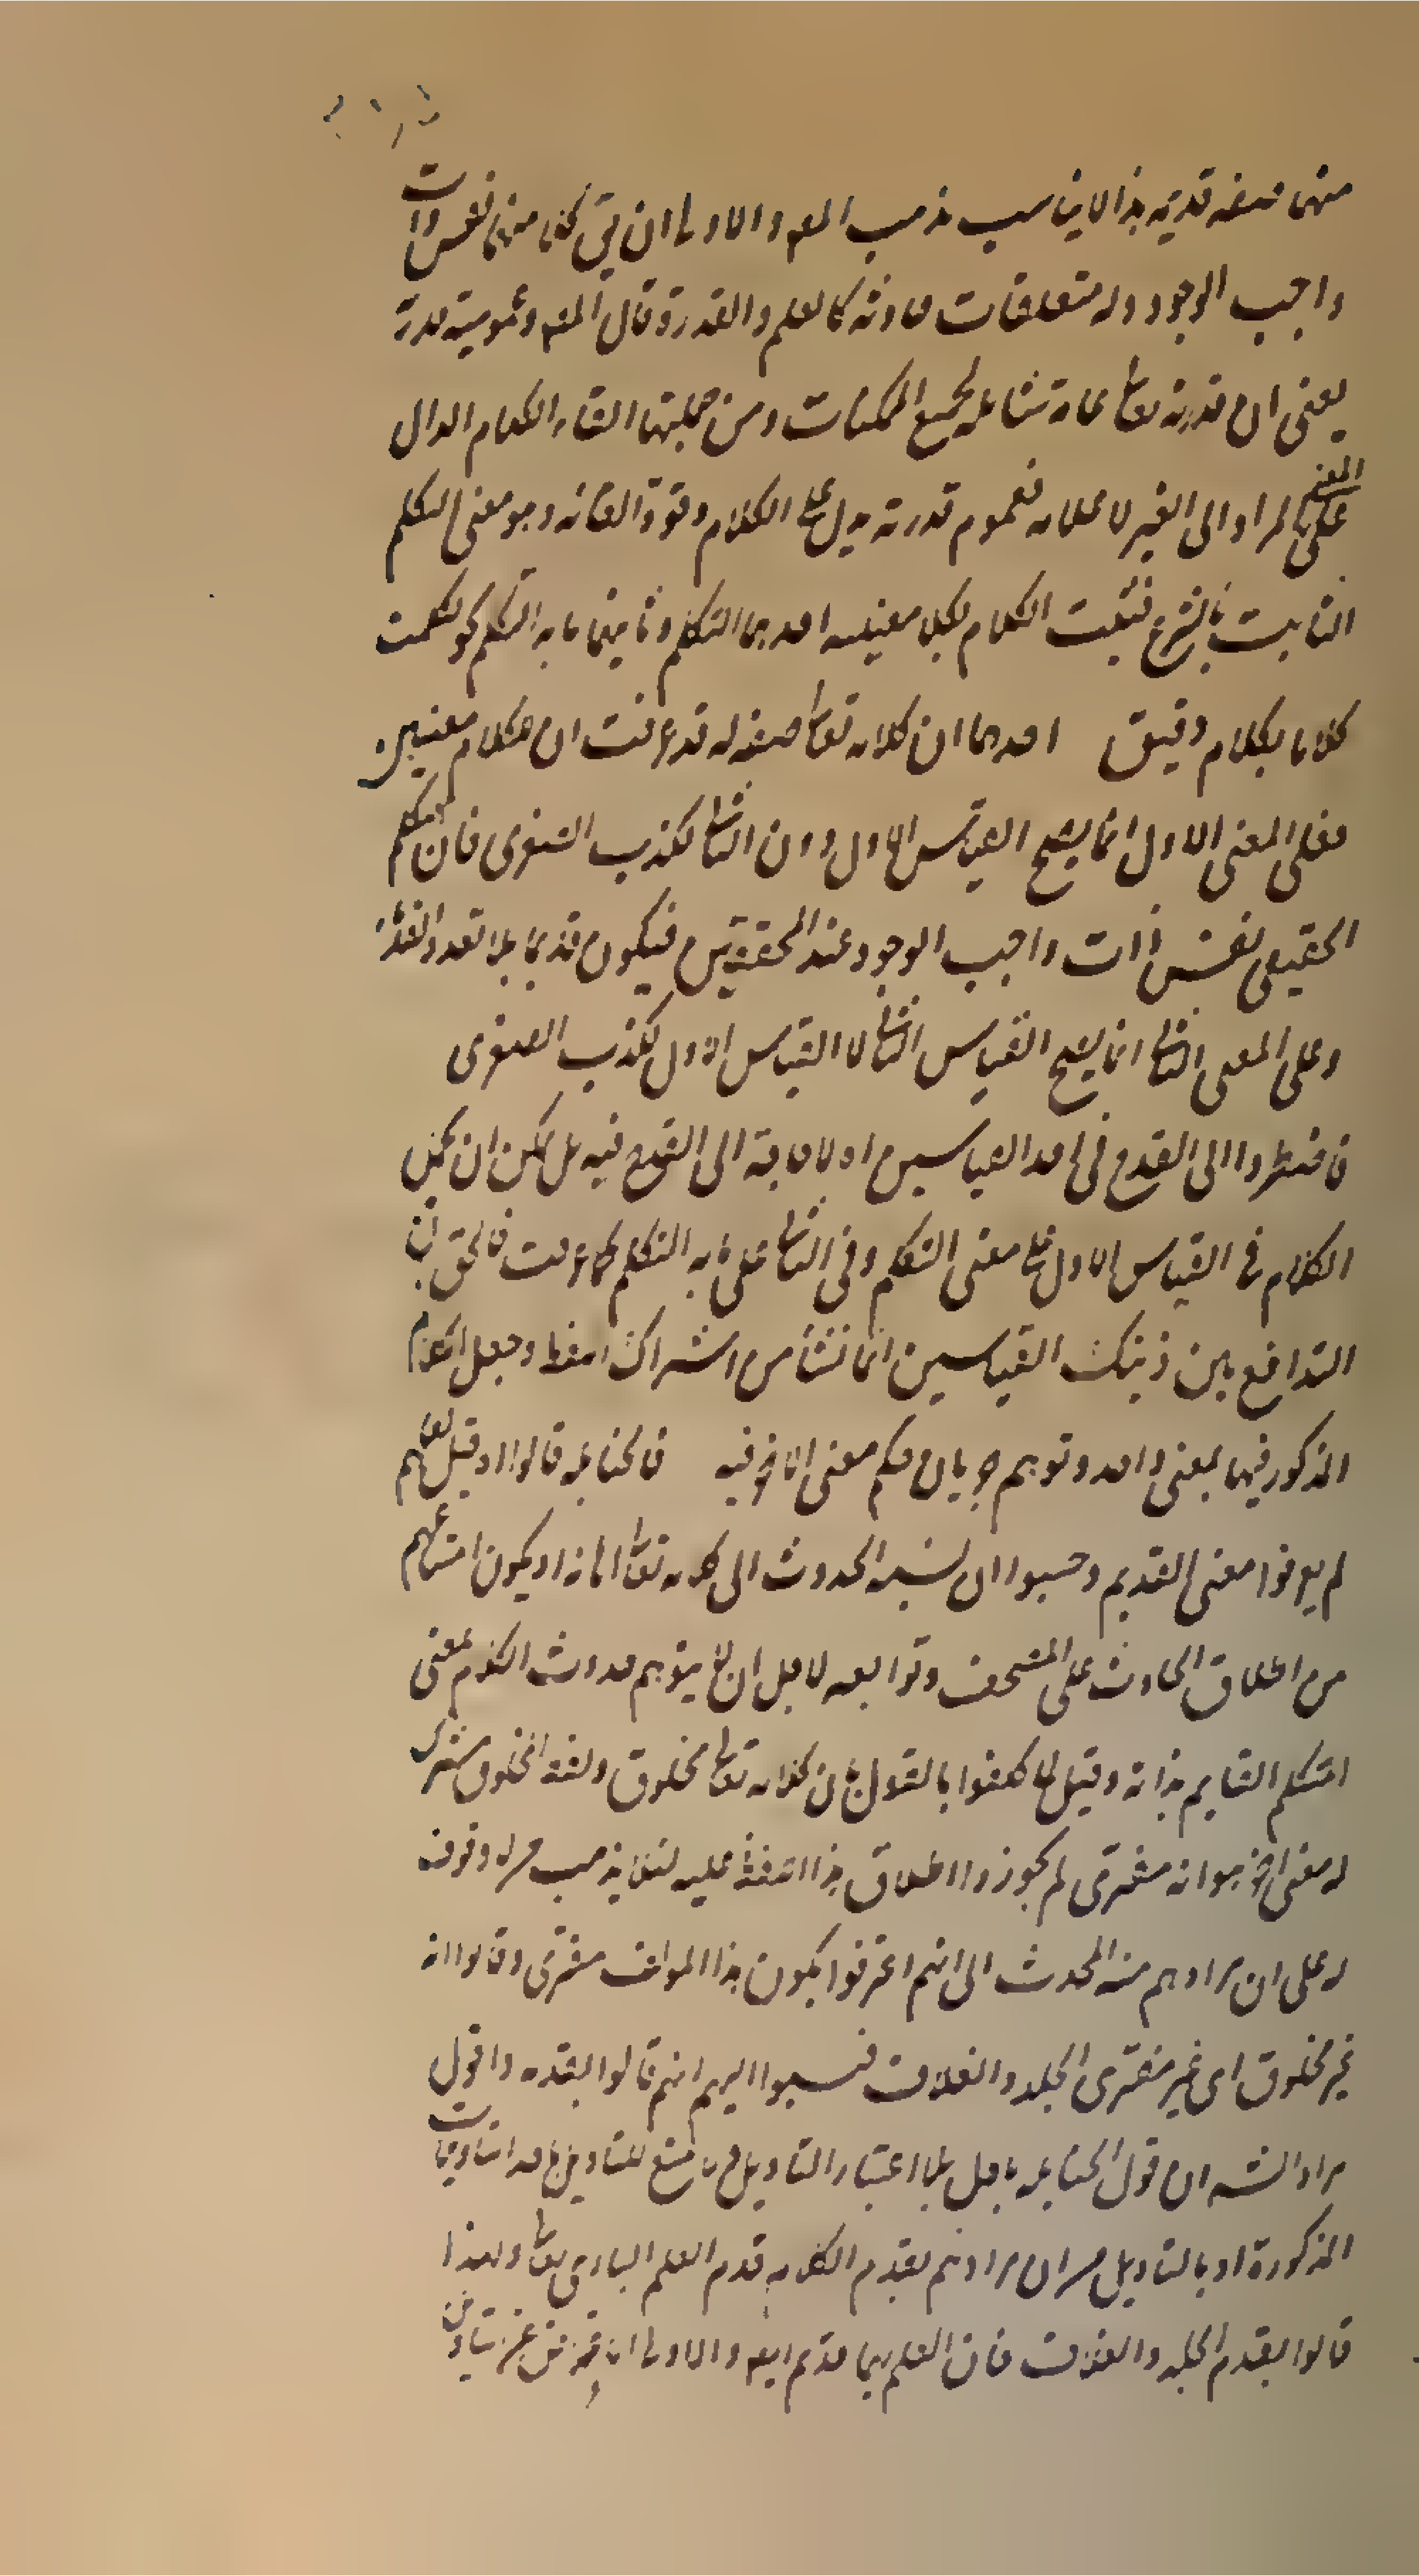 منهما صفة قديمة هذا لا يناسب مذهب المصم والاولى ان يق كلا منهما نفس ذات
واجب الوجود وله متعلقات حادثه كالعلم والقدرة قال المصم وعمومية قدرته
يعنى ان قدرته تعالى عامة شاملة لجميع الممكنات ومن جملتها القاء الكلام الدال
على المعنى المراد الى الغير لاعلامه فعموم قدرته يدل على الكلام وقوة القائه وهو معنى التكلم
الثابت بالشرع فثبت الكلام بكلا معنييه احدهما التكلم وثانيهما ما به التكلم نحو تكلمت
كلاما بكلام دقيق احدهما ان كلامه تعالى صفة له قد عرفت ان للكلام معنيين
فعلى المعنى الاول انما يصح القياس الاول دون الثانى لكذب الصغرى فان التكلم
الحقيقى نفس ذات واجب الوجود عند المحققين فيكون قديما بلا تعدد القدماء
وعلى المعنى الثانى انما يصح القياس الثانى لا القياس الاول لكذب الصغرى
فاضطروا الى القدح فى احد القياسين اه لا حاجة الى القدح فيه بل يمكن ان يحمل
الكلام فى القياس الاول على معنى التكلم وفى الثانى على ما به التكلم كما عرفت فالحق ان
التدافع بين ذينك القياسين انما نشأ من اشتراك اللفظ وجعل الكلام
المذكور فيهما بمعنى واحد وتوهم جريان حكم معنى الآخر فيه فالحنابلة قالوا اه قيل لعلهم
لم يعرفوا معنى القديم وحسبوا ان نسبة الحدوث الى كلامه تعالى اهانة او يكون امتناعهم
من اطلاق الحادث على المصحف وتوابعه لاجل ان لا يتوهم حدوث الكلام بمعنى
التكلم القايم بذاته وقيل لما كلفوا بالقول بان كلامه تعالى مخلوق ولفظ المخلوق مشترك
له معنى آخر هو انه مفترى لم يجوزوا اطلاق هذا اللفظ عليه لئلا يذهب من لا وقوف
له على ان مرادهم منه المحدث الى انهم اعترفوا بكون هذا المؤلف مفترى وقالوا انه
غير مخلوق اى غير مفترى الجلد والغلاف فنسبوا اليهم انهم قالوا بقدمه واقول
مراد الشه ان قول الحنابلة باطل بلا اعتبار التاويل فلا منع للتاويل باحد التاويلات
المذكورة او بالتاويل من ان مرادهم بقدم الكلام قدم العلم البارى تعالى ولهذا
قالوا بقدم الجلد والغلاف فان العلم بهما قديم ايضا والاولى ان